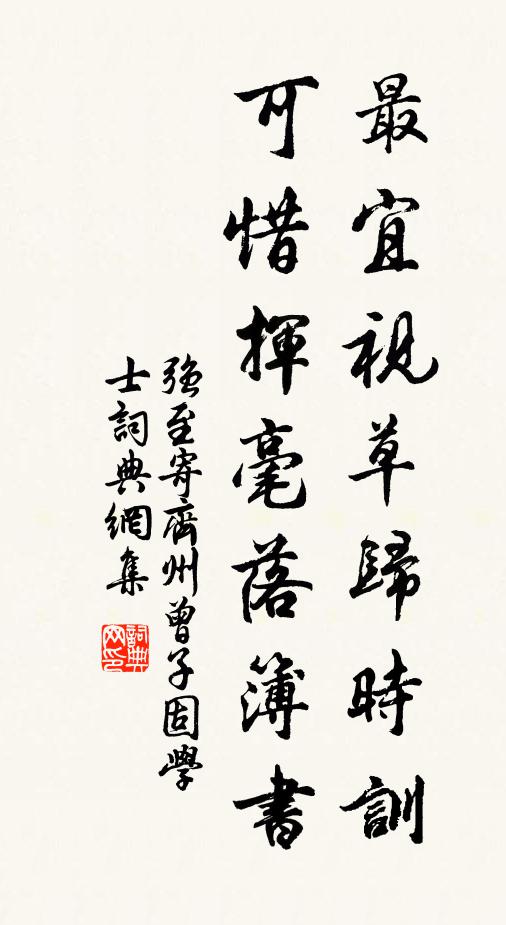 最宜視草歸時訓
可惜揮毫落簿書
強至寄齊州曾子固學
士詞典網集
詞典網印